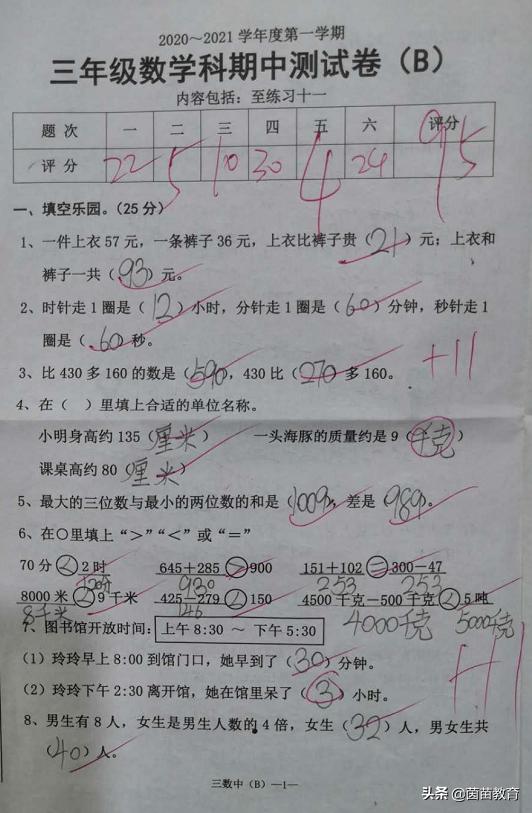 2020～2021学年度第一学期
三年级数学科期中测试卷（B）
内容包括：至练习十一
题 次 一 二 三 四 五 六 评分
评 分 22 5 10 30 4 24 95
一、填空乐园。（25分）
1、一件上衣57元，一条裤子36元，上衣比裤子贵（21）元；上衣和
裤子一共（93）元。
2、时针走1圈是（12）小时，分针走1圈是（60）分钟，秒针走1
圈是（60）秒。
3、比430多160的数是（590），430比（270）多160。
+11
4、在（ ）里填上合适的单位名称。
小明身高约135（厘米） 一头海豚的质量约是9（千克）
课桌高约80（厘米）
5、最大的三位数与最小的两位数的和是（1009），差是（989）。
6、在○里填上“>”“<”或“=”
70分<2时 645+285>900 151+102=300-47
120分 930 253 253
8000米<9千米 425-279<150 4500千克-500千克<5吨
8千米 146 4000千克 5000千克
7、图书馆开放时间：上午8:30 ～ 下午5:30
（1）玲玲早上8:00到馆门口，她早到了（30）分钟。
+11
（2）玲玲下午2:30离开馆，她在馆里呆了（3）小时。
8、男生有8人，女生是男生人数的4倍，女生（32）人，男女生共
（40）人。
三数中（B）—1—
头条 @茵苗教育